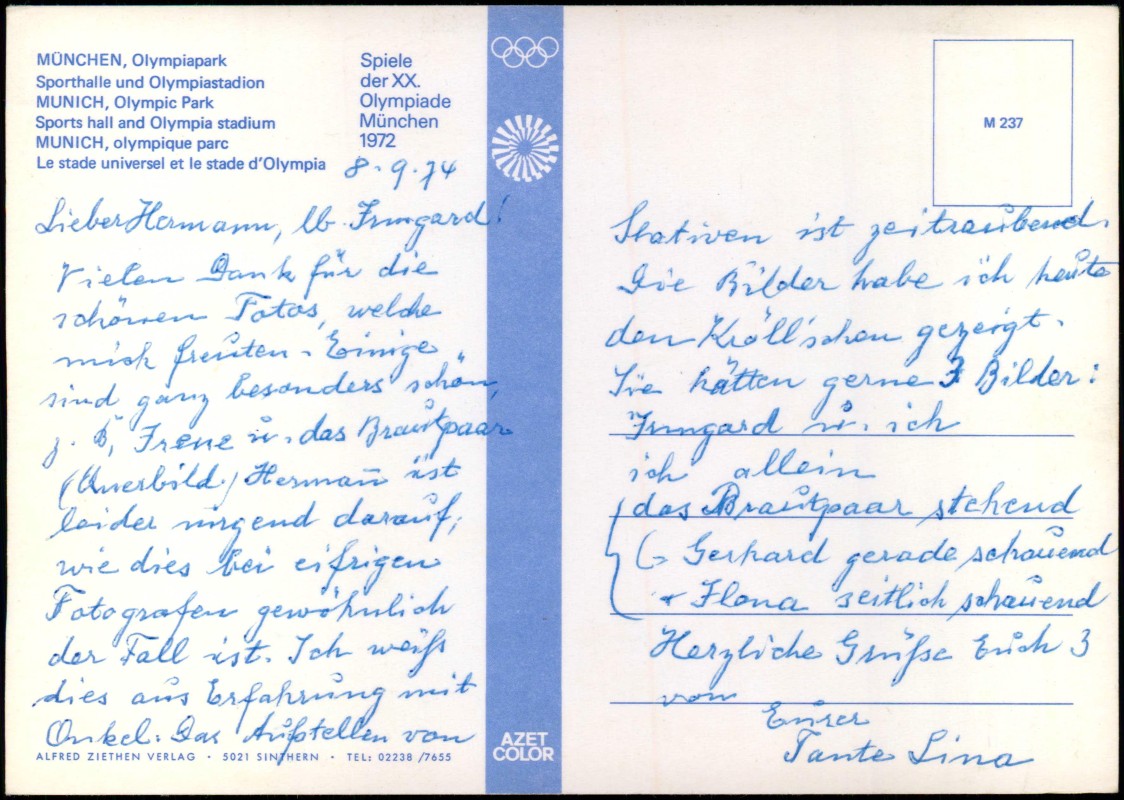 MÜNCHEN, Olympiapark
Sporthalle und Olympiastadion
MUNICH, Olympic Park
Sports hall and Olympia stadium
MUNICH, olympique parc
Le stade universel et le stade d'Olympia
Spiele
der XX.
Olympiade
München
1972
8.9.74
Lieber Hermann, lb. Irmgard!
Vielen Dank für die
schönen Fotos, welche
mich freuten. Einige
sind ganz besonders schön,
z. B. Irene u. das Brautpaar
(Querbild.) Hermann ist
leider nirgend darauf,
wie dies bei eifrigen
Fotografen gewöhnlich
der Fall ist. Ich weiß
dies aus Erfahrung mit
Onkel. Das Aufstellen von
ALFRED ZIETHEN VERLAG · 5021 SINTHERN · TEL: 02238 /7655
AZET
COLOR
M 237
Stativen ist zeitraubend.
Die Bilder habe ich heute
den Kröll'schen gezeigt.
Sie hätten gerne 3 Bilder:
Irmgard u. ich
ich allein
das Brautpaar stehend
(Gerhard gerade schauend
+ Ilona seitlich schauend
Herzliche Grüße Euch 3
von
Eurer
Tante Lina